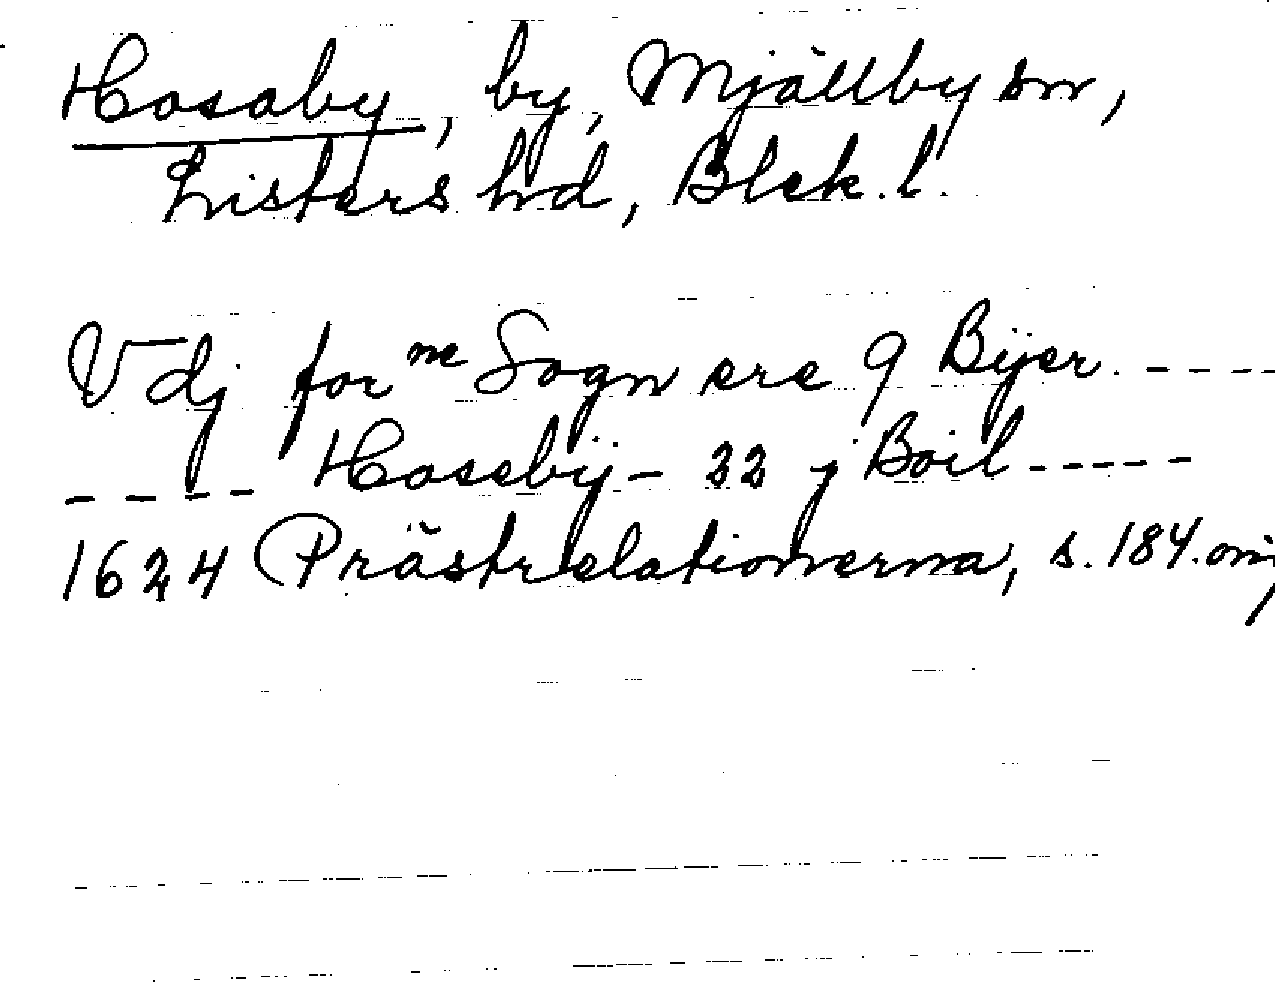 Hosaby, by, Mjällby sn,
Listers hd, Blek. l.
Vdj for^me Sogn ere 9 Bÿer. - - - -
- - - - Hosebÿ - 22 j Boel - - - - -
1624 Prästrelationerna, s. 184.